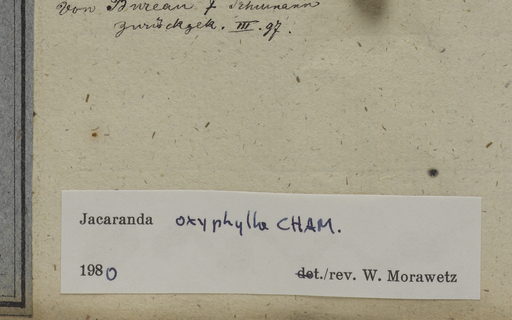 von Bureau & Schumann
zurückgek. III. 97.
Jacaranda oxyphylla CHAM.
1980 det./rev. W. Morawetz